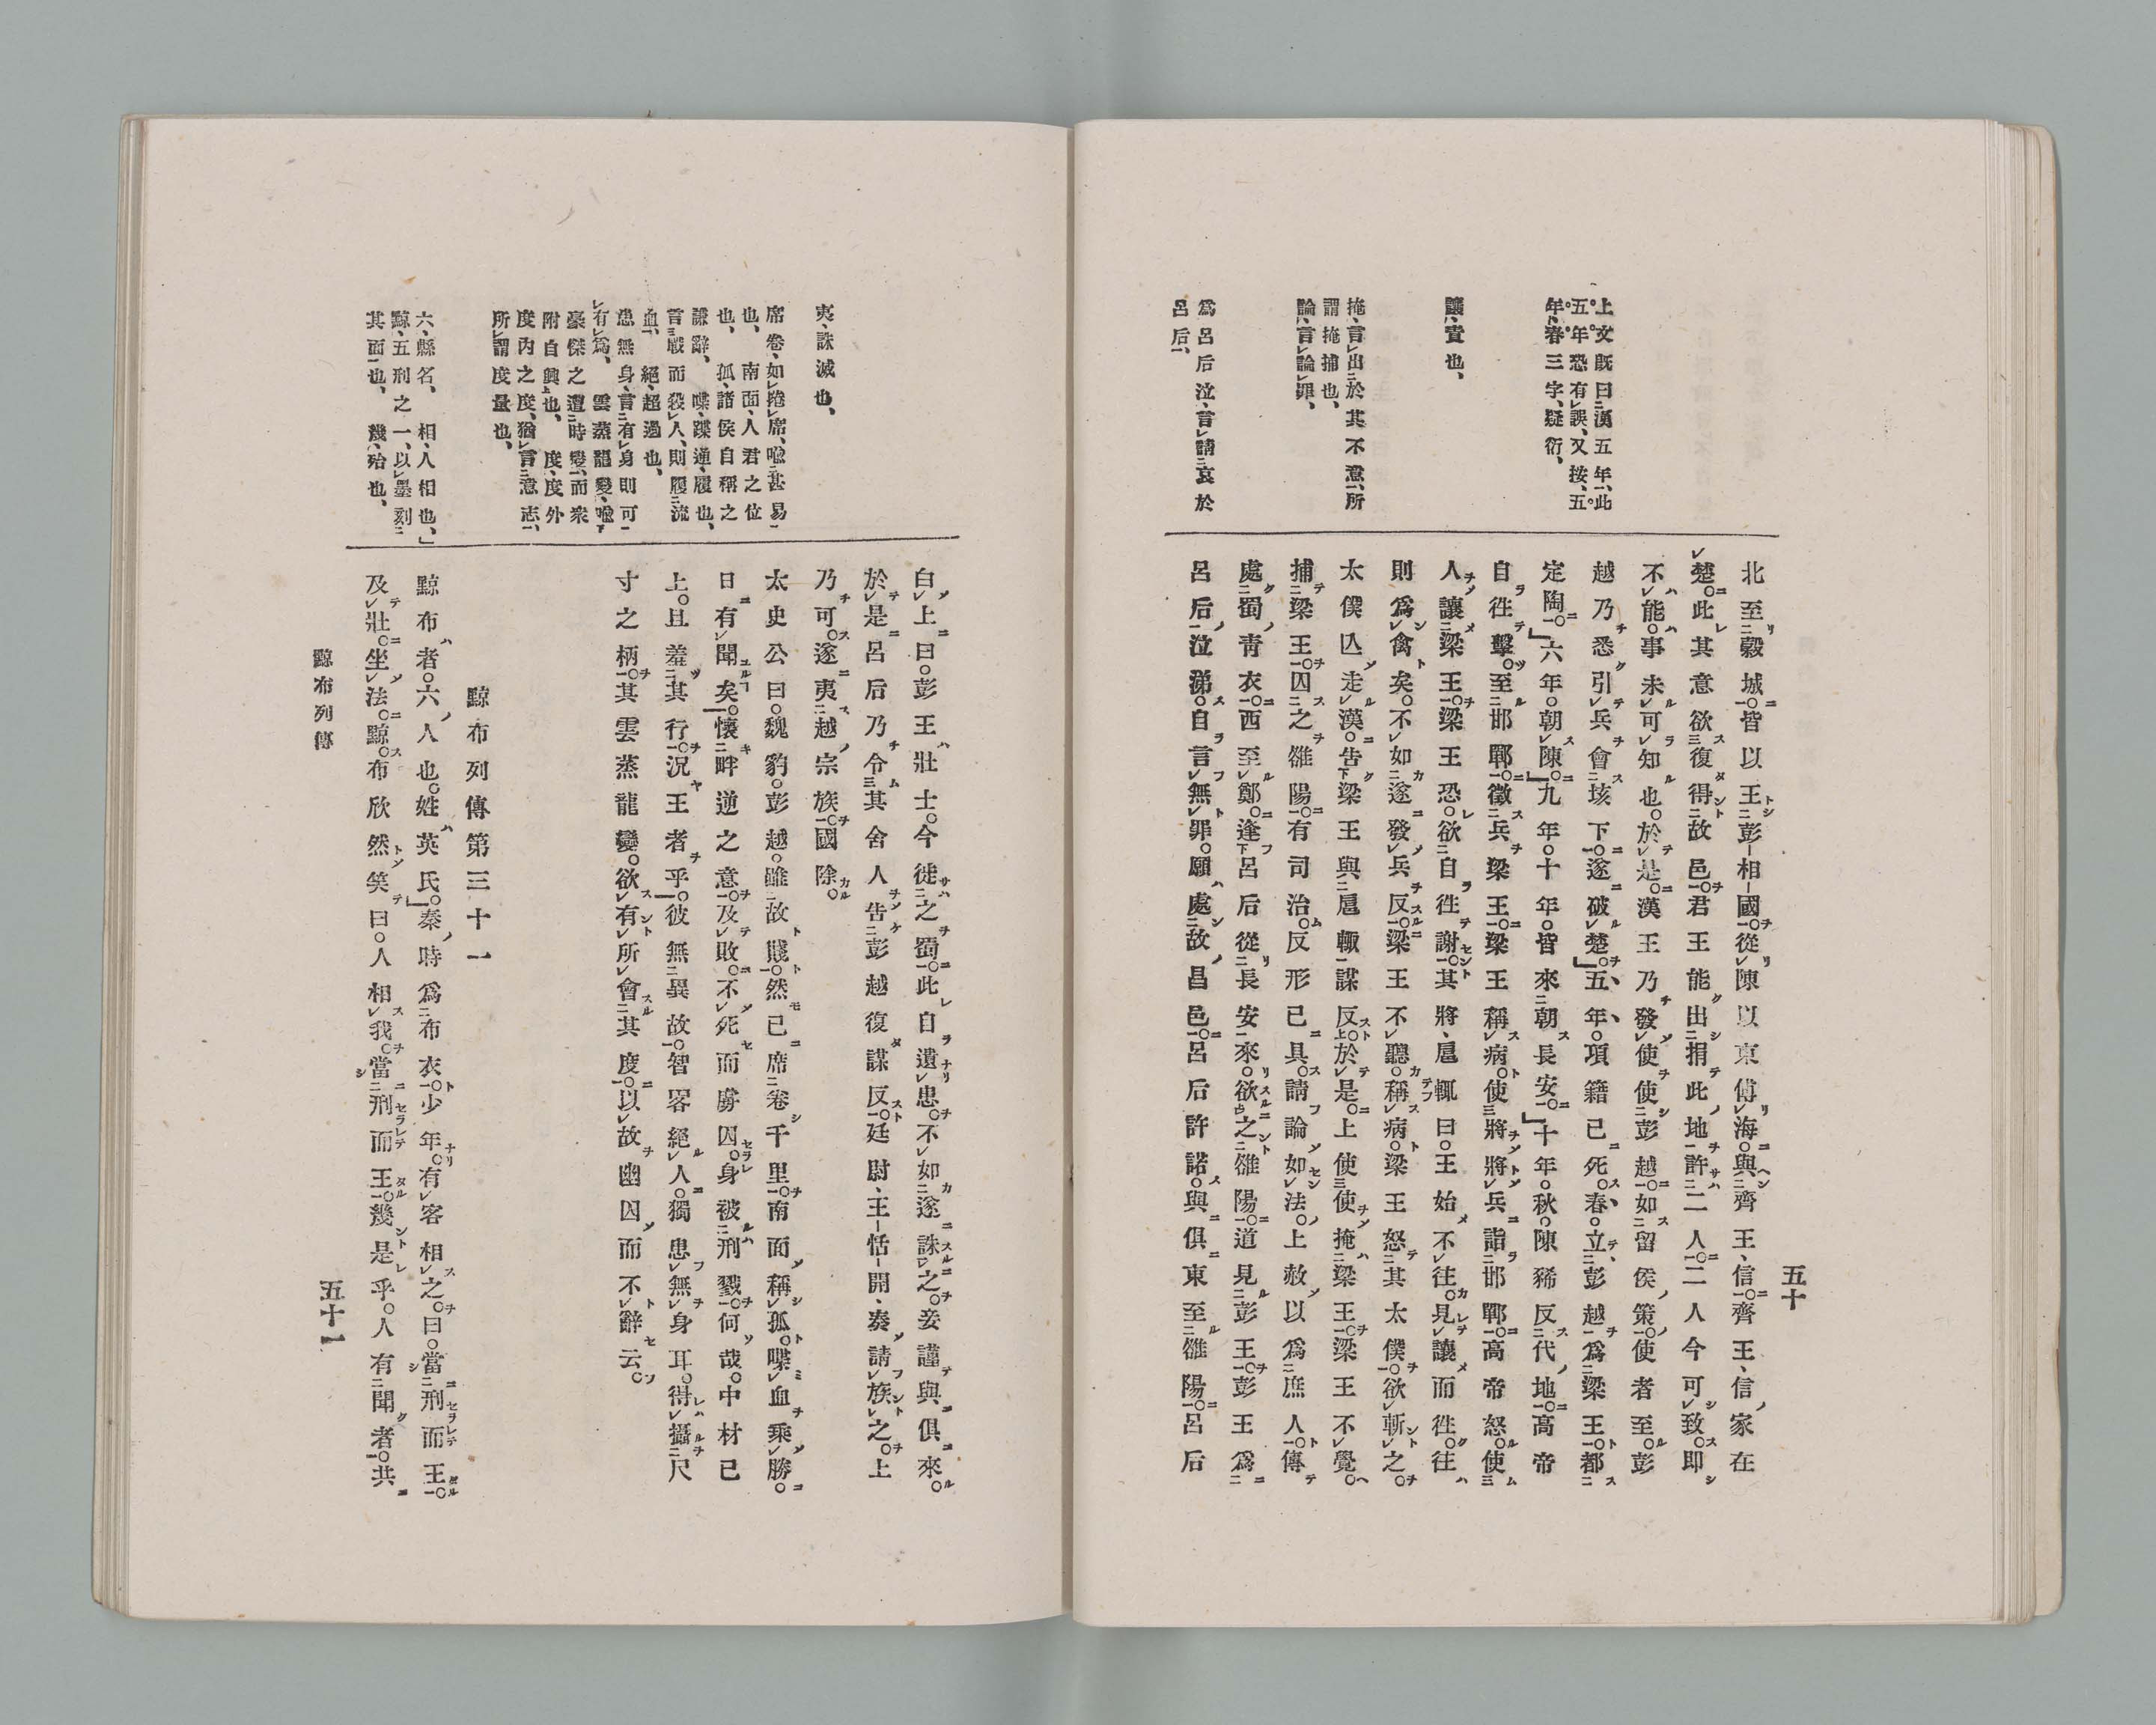 上文既曰漢五年、此
五年恐有誤、又按、五
年、春三字、疑衍、
讓、責也、
掩、言出於其不意、所
謂掩捕也、
論、言論罪、
爲呂后泣、言請哀於
呂后、
北至穀城。皆以王彭相國。從陳以東傅海。與齊王、信。齊王、信家在
楚。此其意欲復得故邑。君王能出捐此地許二人。二人今可致。即
不能。事未可知也。於是。漢王乃發使使彭越。如留侯策。使者至。彭
越乃悉引兵會垓下。遂破楚。」五年。項籍已死。春。立彭越爲梁王。都
定陶。」六年。朝陳。」九年。十年。皆來朝長安。」十年。秋。陳豨反代地。高帝
自徃擊。至邯鄲。徵兵梁王。梁王稱病。使將將兵詣邯鄲。高帝怒。使
人讓梁王。梁王恐。欲自徃謝。其將、扈輒曰。王始不往。見讓而徃。往
則爲禽矣。不如遂發兵反。梁王不聽。稱病。梁王怒其太僕。欲斬之。
太僕亾走漢。告梁王與扈輙謀反。於是。上使使掩梁王。梁王不覺。
捕梁王。囚之雒陽。有司治。反形已具。請論如法。上赦以爲庶人。傳
處蜀青衣。西至鄭。逢呂后從長安來。欲之雒陽。道見彭王。彭王爲
呂后泣涕。自言無罪。願處故昌邑。呂后許諾。與俱東至雒陽。呂后
五十
夷、誅滅也、
席卷、如捲席、喩甚易
也、南面、人君之位
也、孤、諸侯自稱之
謙辭、喋、蹀通、履也、
言戰而殺人、則履流
血、絕、超過也、
患無身、言有身則可
有爲、雲蒸龍變、喩
豪傑之遭時變、而衆
附自興也、度、度外
度內之度、猶言意志、
所謂度量也、
六、縣名、相、人相也、」
黥、五刑之一、以墨刻
其面也、幾、殆也、
白上曰。彭王壯士。今徙之蜀。此自遺患。不如遂誅之。妾謹與俱來。
於是呂后乃令其舍人告彭越復謀反。廷尉、王恬開、奏請族之。上
乃可。遂夷越宗族。國除。
太史公曰。魏豹。彭越。雖故賤。然已席卷千里。南面稱孤。喋血乘勝。
日有聞矣。懷畔逆之意。及敗。不死而虜囚。身被刑戮。何哉。中材已
上。且羞其行。況王者乎。彼無異故。智畧絕人。獨患無身耳。得攝尺
寸之柄。其雲蒸龍變。欲有所會其度。以故幽囚而不辭云。
黥布列傳第三十一
黥布者。六人也。姓英氏。」秦時爲布衣。少年。有客相之。曰。當刑而王。
及壯。坐法。黥。布欣然笑曰。人相我。當刑而王。幾是乎。人有聞者。共
黥布列傳
五十一